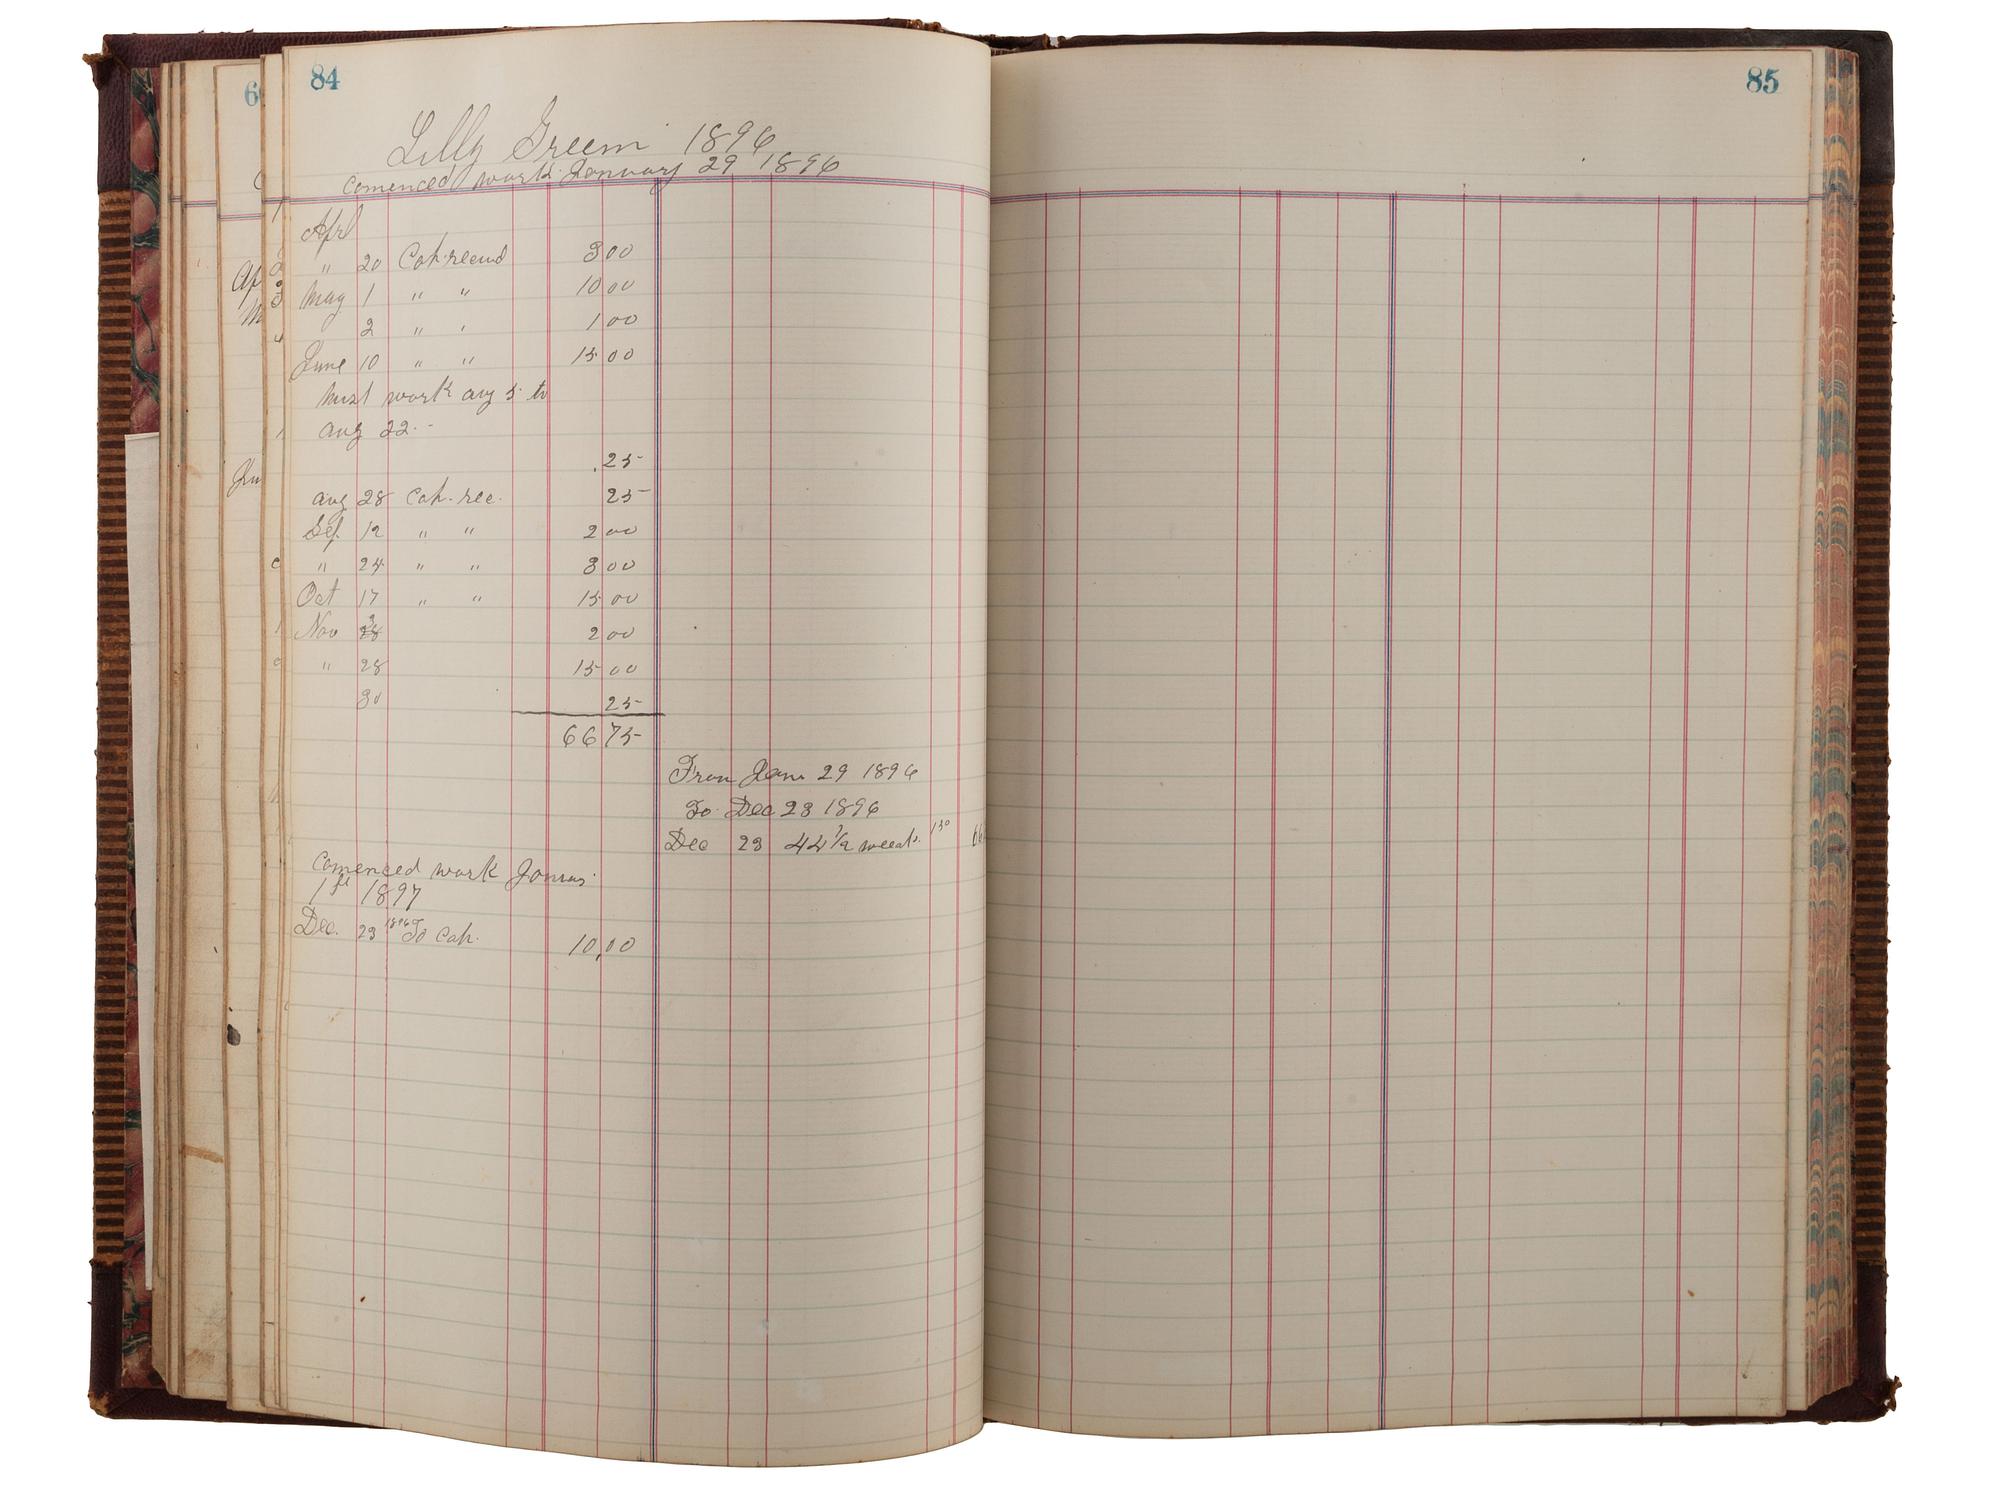 84
Lilly Green 1896
comenced work January 29 1896
Apr
" 20 Cah recud 3 00
May 1 " " 10 00
2 " ' 1 00
June 10 " " 15 00
work aug 5 to
aug 22. -
.25
aug 28 Cah. rec. 25
Sep. 12 " " 2 00
" 24 " " 3 00
Oct 17 " " 15 00
Nov 3 2 00
" 28 15 00
30 25
66 75
From Jan 29 1896
To Dec 23 1896
Dec 23 44 1/2 weeks 1 50 66
comenced work
1st 1897
Dec. 23 1896 To Cah. 10,00
85
Ap
M
Jun